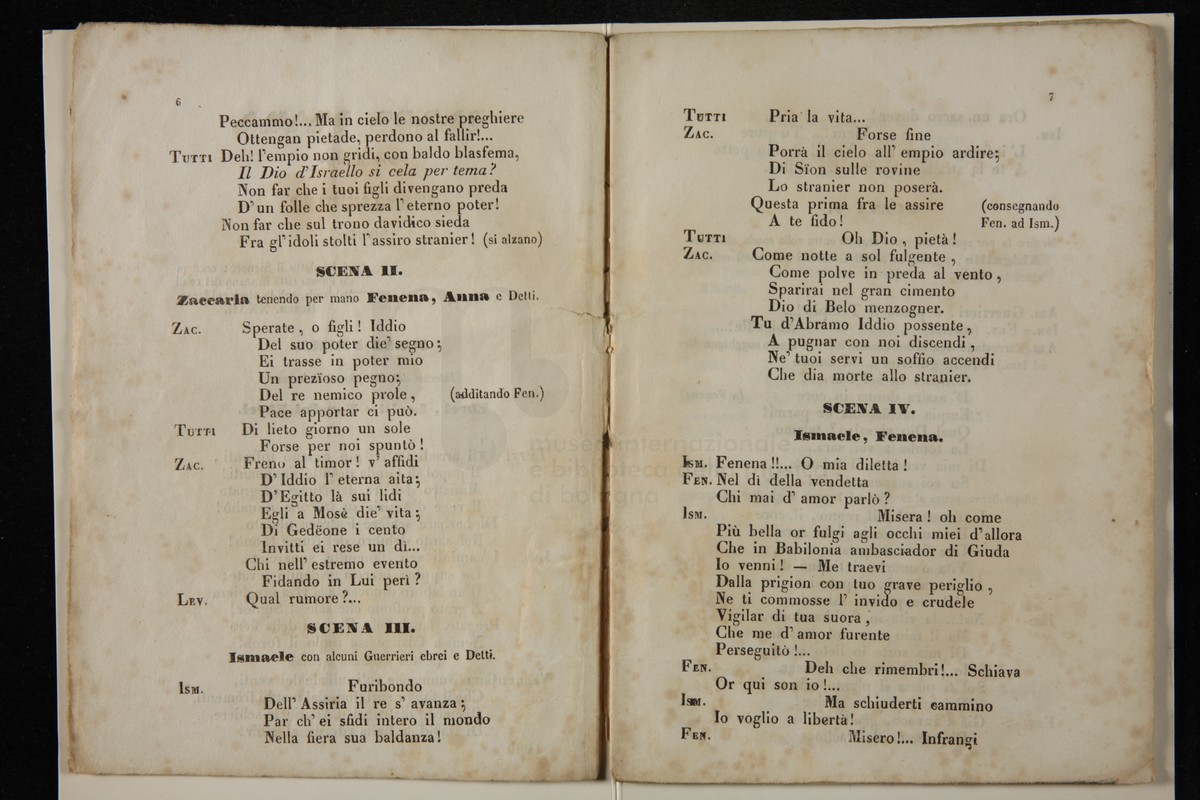 6
Peccammo!... Ma in cielo le nostre preghiere
Ottengan pietade, perdono al fallir!...
TUTTI Deh! l'empio non gridi, con baldo blasfema,
Il Dio d'Israello si cela per tema?
Non far che i tuoi figli divengano preda
D'un folle che sprezza l'eterno poter!
Non far che sul trono davidico sieda
Fra gl'idoli stolti l'assiro stranier! (si alzano)
SCENA II.
Zaccaria tenendo per mano Fenena, Anna e Detti.
ZAC. Sperate, o figli! Iddio
Del suo poter die' segno;
Ei trasse in poter mio
Un prezïoso pegno;
Del re nemico prole, (additando Fen.)
Pace apportar ci può.
TUTTI Di lieto giorno un sole
Forse per noi spuntò!
ZAC. Freno al timor! v'affidi
D'Iddio l'eterna aita;
D'Egitto là sui lidi
Egli a Mosè die' vita;
Di Gedëone i cento
Invitti ei rese un dì...
Chi nell'estremo evento
Fidando in Lui perì?
LEV. Qual rumore?...
SCENA III.
Ismaele con alcuni Guerrieri ebrei e Detti.
ISM. Furibondo
Dell'Assiria il re s'avanza;
Par ch'ei sfidi intero il mondo
Nella fiera sua baldanza!
7
TUTTI Pria la vita...
ZAC. Forse fine
Porrà il cielo all'empio ardire;
Di Sïon sulle rovine
Lo stranier non poserà.
Questa prima fra le assire (consegnando
A te fido! Fen. ad Ism.)
TUTTI Oh Dio, pietà!
ZAC. Come notte a sol fulgente,
Come polve in preda al vento,
Sparirai nel gran cimento
Dio di Belo menzogner.
Tu d'Abramo Iddio possente,
A pugnar con noi discendi,
Ne' tuoi servi un soffio accendi
Che dia morte allo stranier.
SCENA IV.
Ismaele, Fenena.
ISM. Fenena!!... O mia diletta!
FEN. Nel dì della vendetta
Chi mai d'amor parlò?
ISM. Misera! oh come
Più bella or fulgi agli occhi miei d'allora
Che in Babilonia ambasciador di Giuda
Io venni! — Me traevi
Dalla prigion con tuo grave periglio,
Ne ti commosse l'invido e crudele
Vigilar di tua suora,
Che me d'amor furente
Perseguitò!...
FEN. Deh che rimembri!... Schiava
Or qui son io!...
ISM. Ma schiuderti cammino
Io voglio a libertà!
FEN. Misero!... Infrangi
museo internazionale
e biblioteca
di bologna